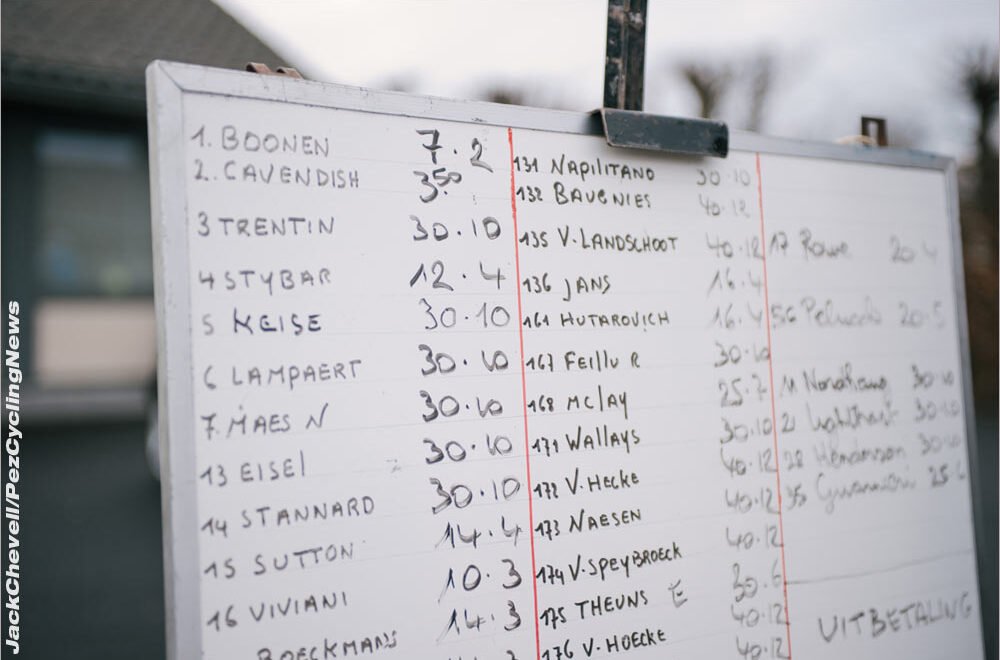 1. BOONEN 7.2
2. CAVENDISH 3.50
3 TRENTIN 30.10
4 STYBAR 12.4
5 KEISE 30.10
6 LAMPAERT 30.10
7. MAES N 30.10
13 EISEl 30.10
14 STANNARD 30.10
15 SUTTON 14.4
16 VIVIANI 10.3
ROECKMANS 14.3
131 NAPILITANO 30.10
132 BAUGNIES 40.12
135 V.LANDSCHOOT 40.12
136 JANS 16.4
161 HUTAROVICH 16.4
167 Feillu R 30.10
168 Mclay 25.7
171 Wallays 30.10
172 V.Hecke 40.12
173 NAESEN 40.12
174 V.SpeyBROECK 40.12
175 THEUNS E 30.6
176 V.HOECKE 40.12
40.12
17 Rowe 20.4
56 20.5
30.10
21 30.10
28 Henderson 30.10
35 25.6
UITBETALING
JackChevell/PezCyclingNews